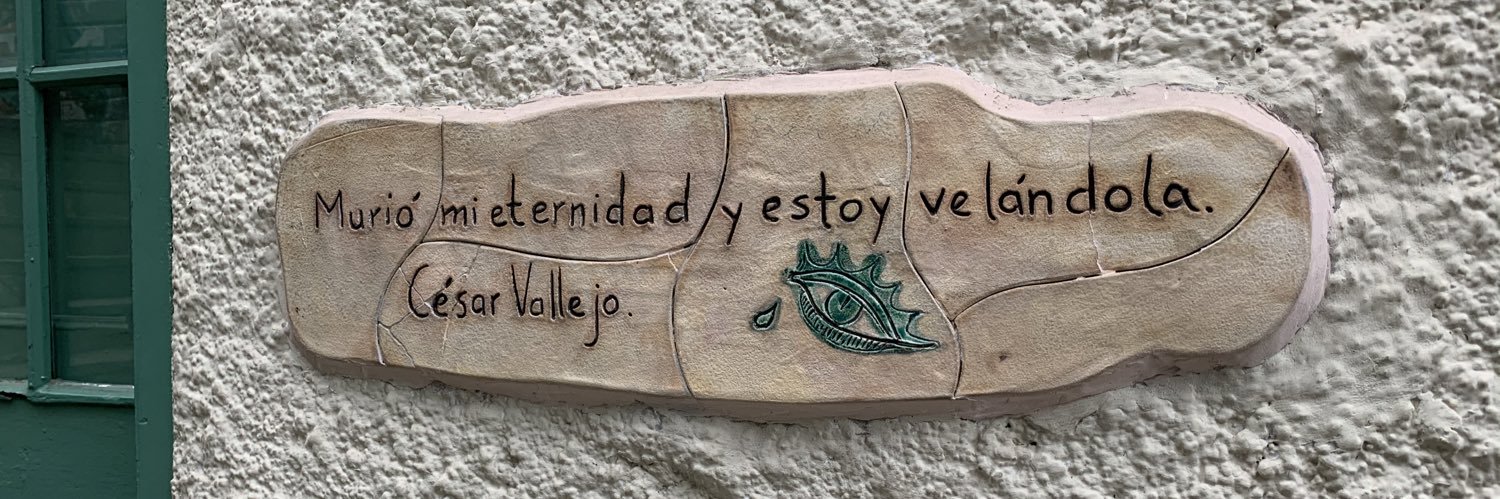 Murió mi eternidad y estoy velándola.
César Vallejo.